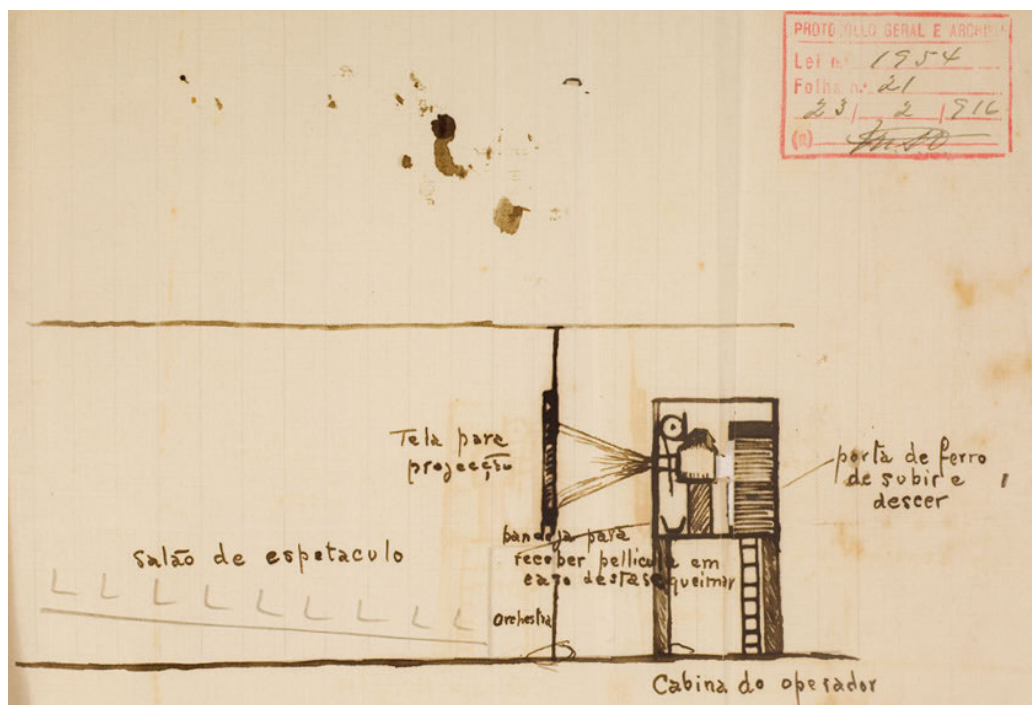 PROTOCOLLO GERAL E ARCHIVO
Lei n.º 1954
Folha n.º 21
23 / 2 / 916
(a)
Tela para
projecção
porta de ferro
de subir e
descer
bandeja para
receber pellicula em
cazo desta se queimar
salão de espetaculo
Orchestra
Cabina do operador